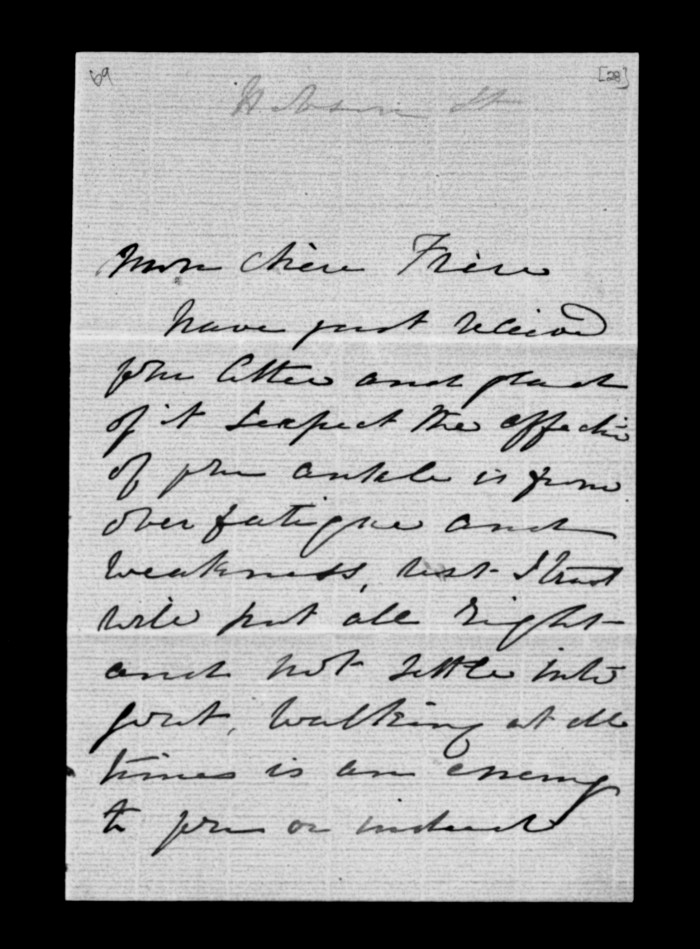 69
[28]
Mon chere Frere
have just received
your letter and glad
of it I expect the affection
of your ankle is from
over fatigue and
weakness, rest I trust
will put all right
and not settle into
gout, walking at all
times is an enemy
to you or indeed